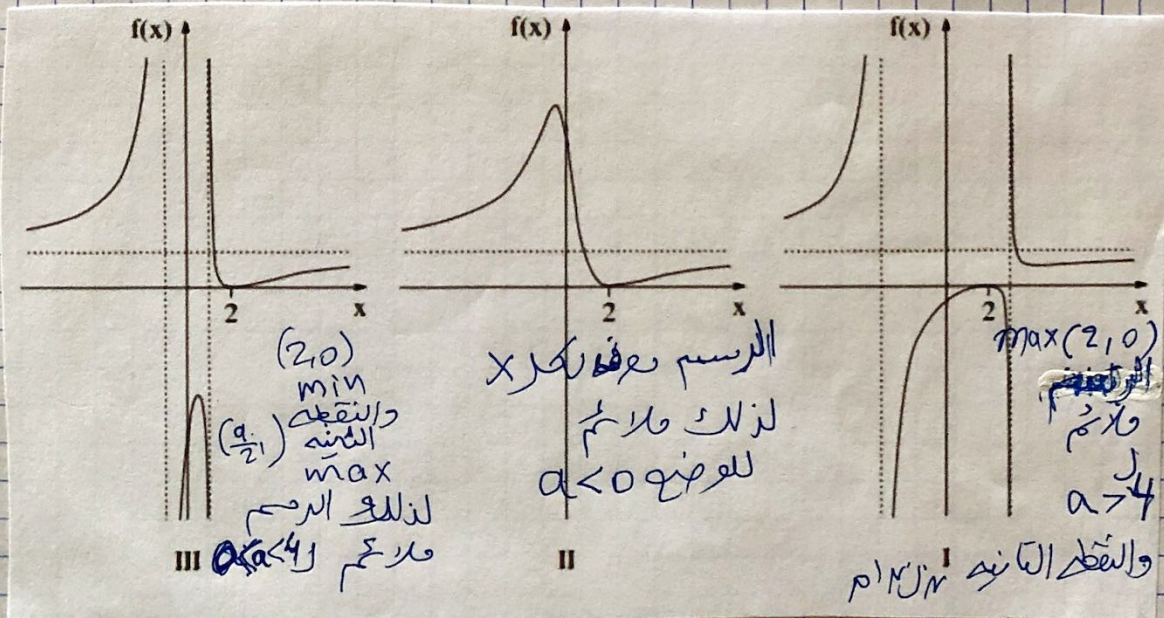 f(x)
2
x
(2,0)
min
والنقطه
الثانيه (a/2,)
max
لذلك الرسم
ملائم ل 0<a<4
III
f(x)
2
x
الرسم معرف لكل x
لذلك ملائم
للوضع a<0
II
f(x)
2
x
max(2,0)
ملائم
ل
a>4
والنقطه الثانيه
I